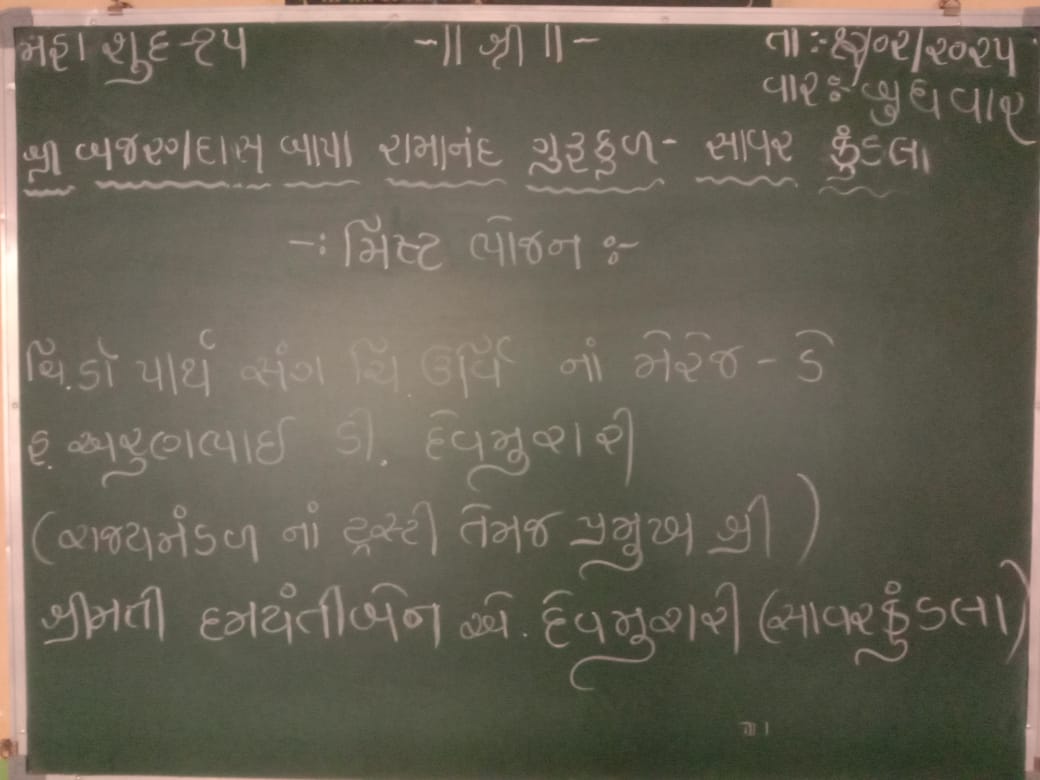 મહા શુદ-૧૫ -॥ શ્રી ॥- તા:-૧૨/૦૨/૨૦૨૫
વારઃ- બુધવાર
શ્રી બજરંગદાસ બાપા રામાનંદ ગુરૂકુળ- સાવર કુંડલા
-: મિષ્ટ ભોજન :-
ચિ.ડો પાર્થ સંગ ચિ. ઉર્વિ નાં મેરેજ - ડે
હ. અરુણભાઈ ડી. દેવમુરારી
(રાજ્યમંડળ નાં ટ્રસ્ટી તેમજ પ્રમુખ શ્રી)
શ્રીમતી દમયંતીબેન એ. દેવમુરારી (સાવરકુંડલા)